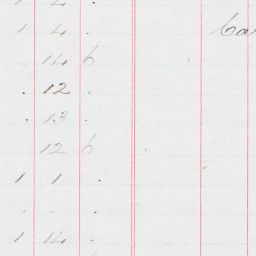 1 4 .
14 6
. 12 .
. 13 .
12 6
1 1 .
. . .
1 14 .